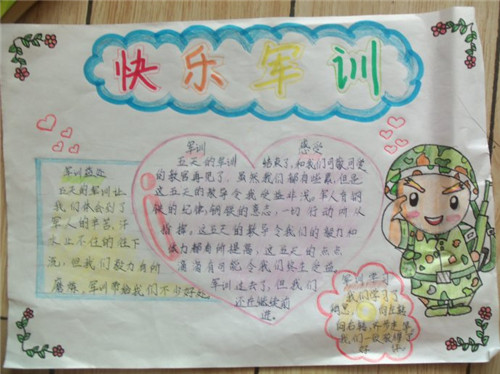 快乐军训
军训益处
五天的军训让
我们体会到了
军人的辛苦,汗
水止不住的往下
流,但我们毅力有所
磨炼,军训带给我们不少好处
军训 感受
五天的军训 结束了,和我们可敬可爱
的教官再见了,虽然我们都有哑气,但是
这五天的教导令我受益非浅。军人有钢
铁的纪律,钢铁的意志,一切行动听从
指挥,这五天的教导令我们的毅力和
体力都有所提高,这五天的点点
滴滴有可能令我们终生受益
军训过去了,但我们
还在继续前
进。
军训 学习
我们学习了
向左转
向右转,齐步走 等
我们一致获得了
好